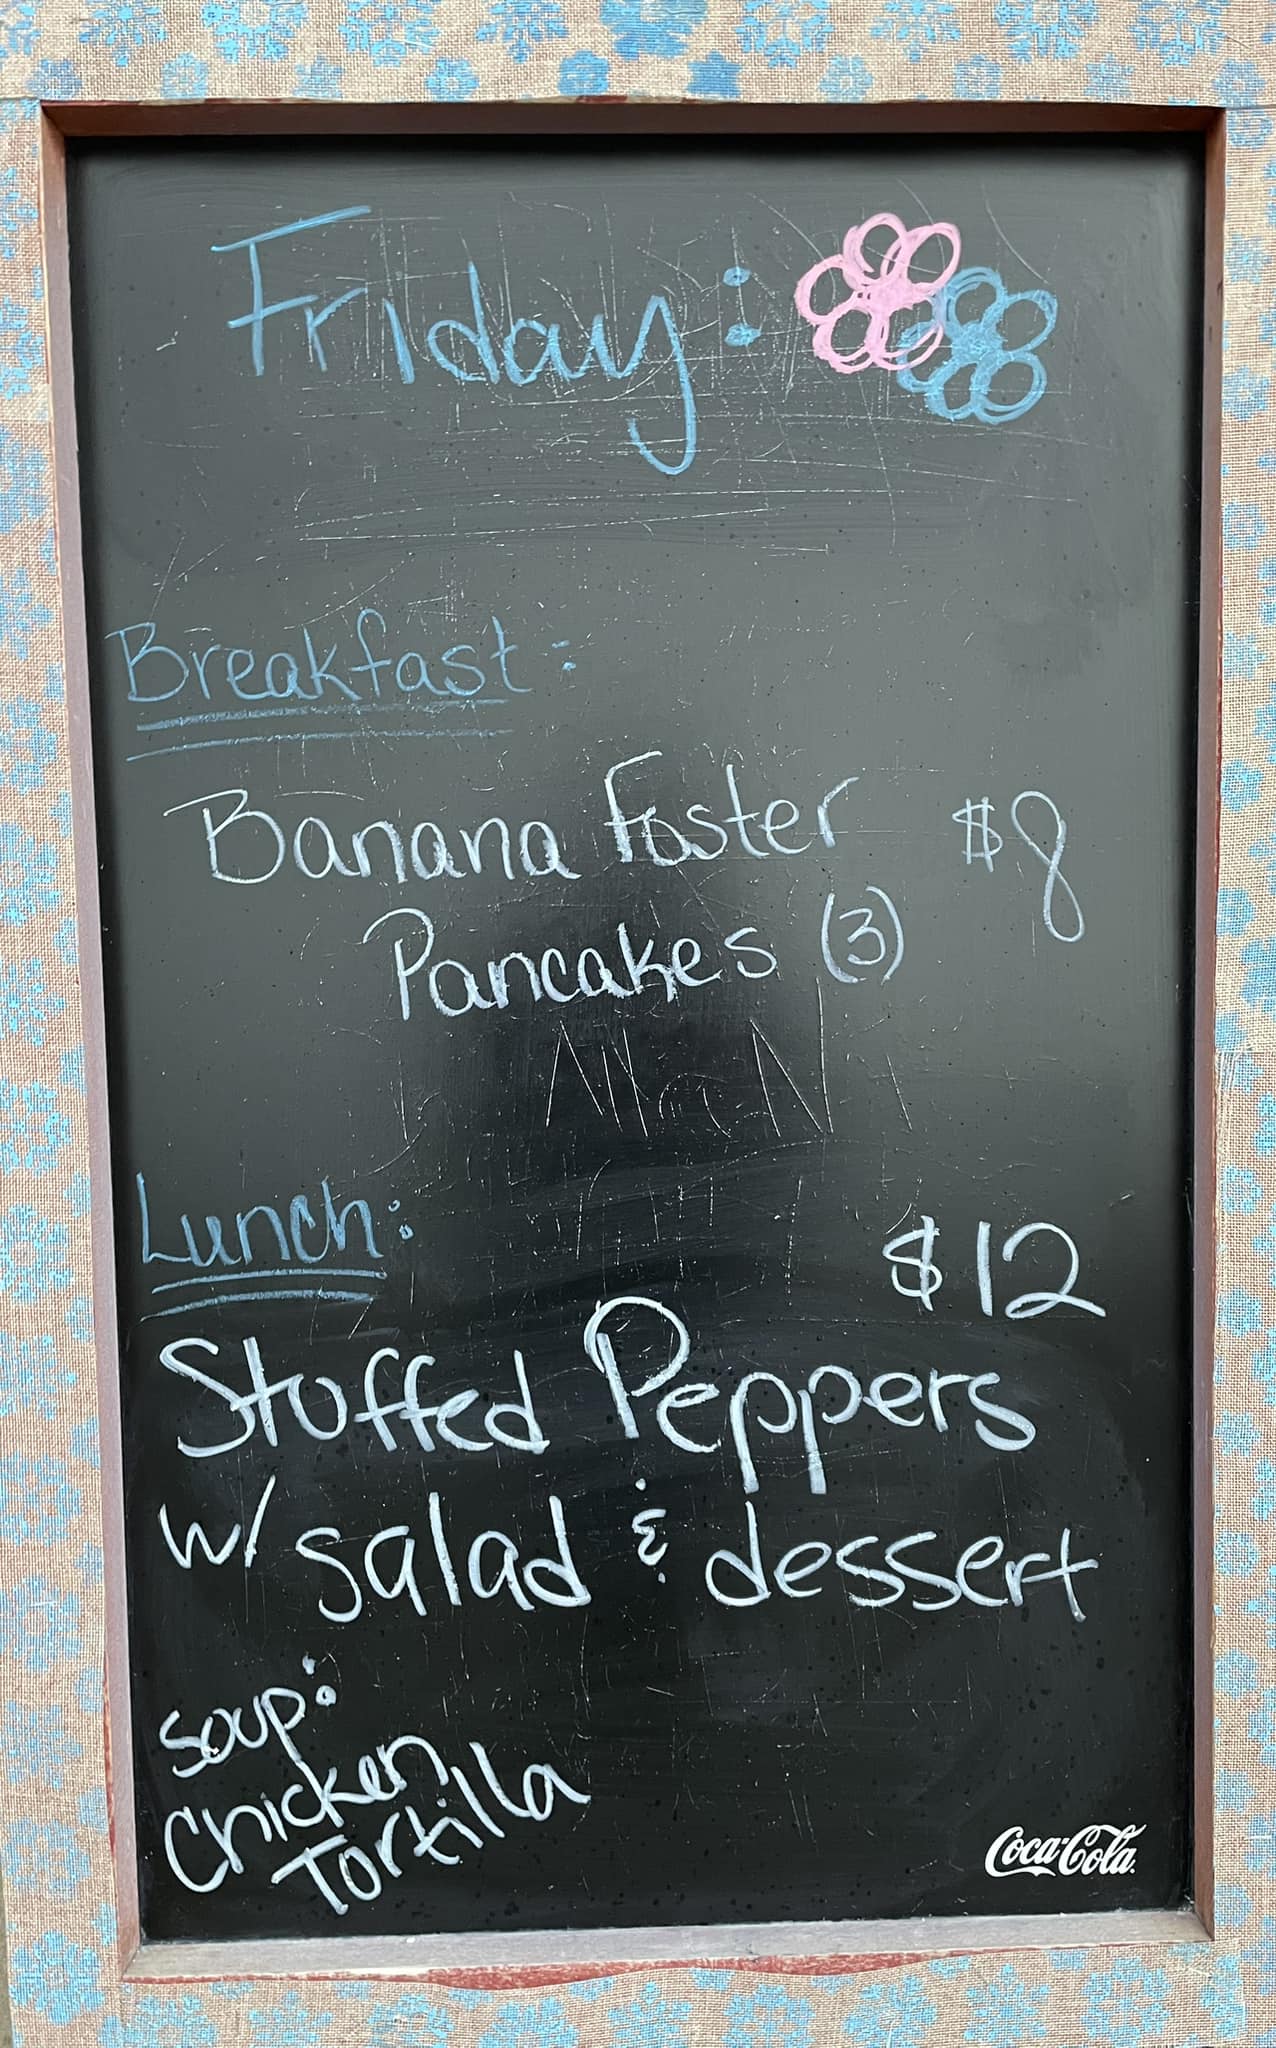 Friday:
Breakfast:
Banana Foster $8
Pancakes (3)
Lunch:
$12
Stuffed Peppers
w/ salad & dessert
soup:
Chicken
Tortilla
Coca-Cola